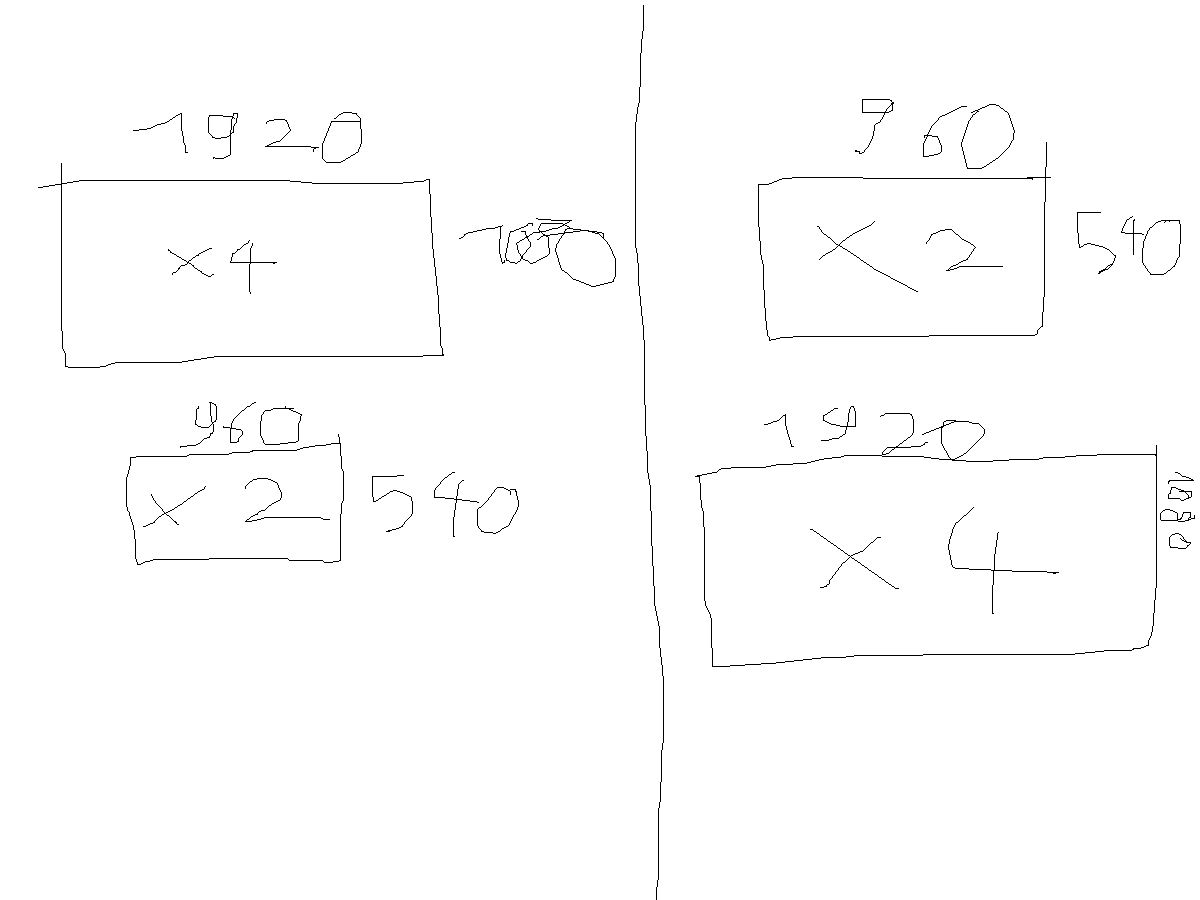 1920
×4
1080
960
×2
540
960
×2
540
1920
×4
1080